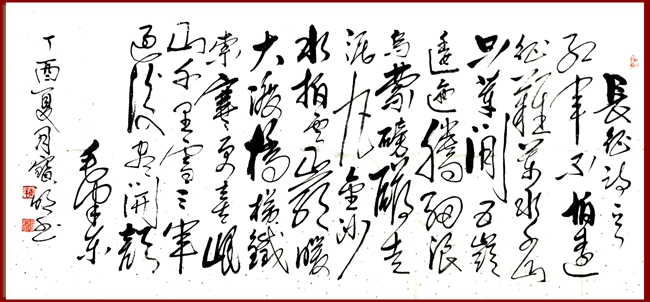 長征詩
红軍不怕遠
征難萬水千山
只等闲五嶺
逶迤騰细浪
烏蒙磅礴走
泥丸金沙
水拍雲崖暖
大渡橋横鐵
索寒更喜岷
山千里雪三軍
过後尽開顏
毛澤东
丁酉夏月寶明书